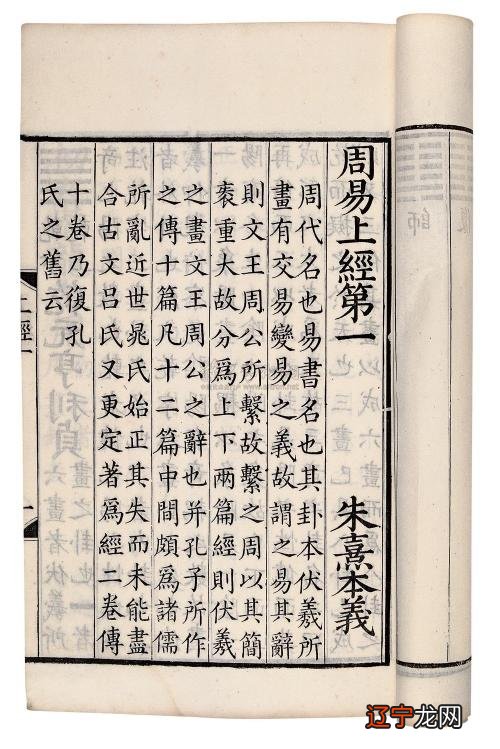 周易上經第一 朱熹本義
周代名也易書名也其卦本伏羲所
畫有交易變易之義故謂之易其辭
則文王周公所繫故繫之周以其簡
袠重大故分爲上下兩篇經則伏羲
之畫文王周公之辭也并孔子所作
之傳十篇凡十二篇中間頗爲諸儒
所亂近世晁氏始正其失而未能盡
合古文吕氏又更定著爲經二卷傳
十卷乃復孔
氏之舊云
上經一
師
辽宁龙网